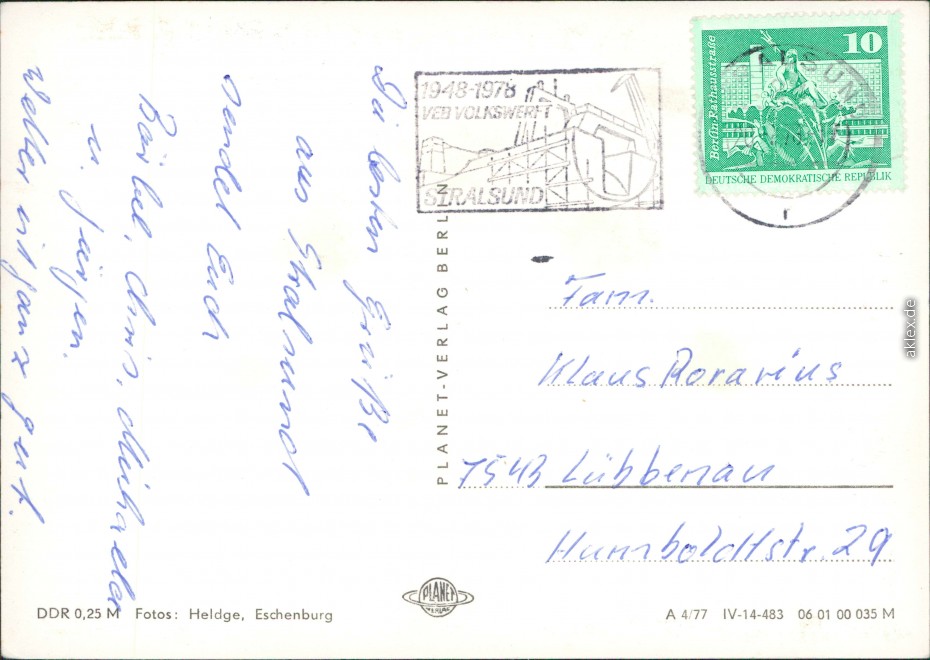 Die besten Grüße
aus Stralsund
sendet Euch
Bärbel, Chris, Michaela
u. Jürgen.
Wetter ist ganz gut.
1948-1978
VEB VOLKSWERFT
STRALSUND
Berlin-Rathausstraße
10
DEUTSCHE DEMOKRATISCHE REPUBLIK
PLANET-VERLAG BERLIN
Fam.
Klaus Rorarius
7543 Lübbenau
Humboldtstr. 29
PLANET
VERLAG
DDR 0,25 M Fotos: Heldge, Eschenburg
A 4/77 IV-14-483 06 01 00 035 M
aklex.de